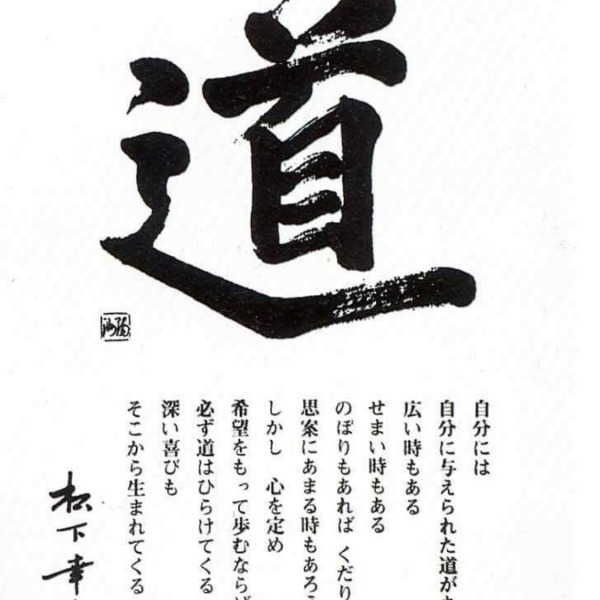 道
自分には
自分に与えられた道が
広い時もある
せまい時もある
のぼりもあれば くだり
思案にあまる時もあろ
しかし 心を定め
希望をもって歩むなら
必ず道はひらけてくる
深い喜びも
そこから生まれてくる
松下幸